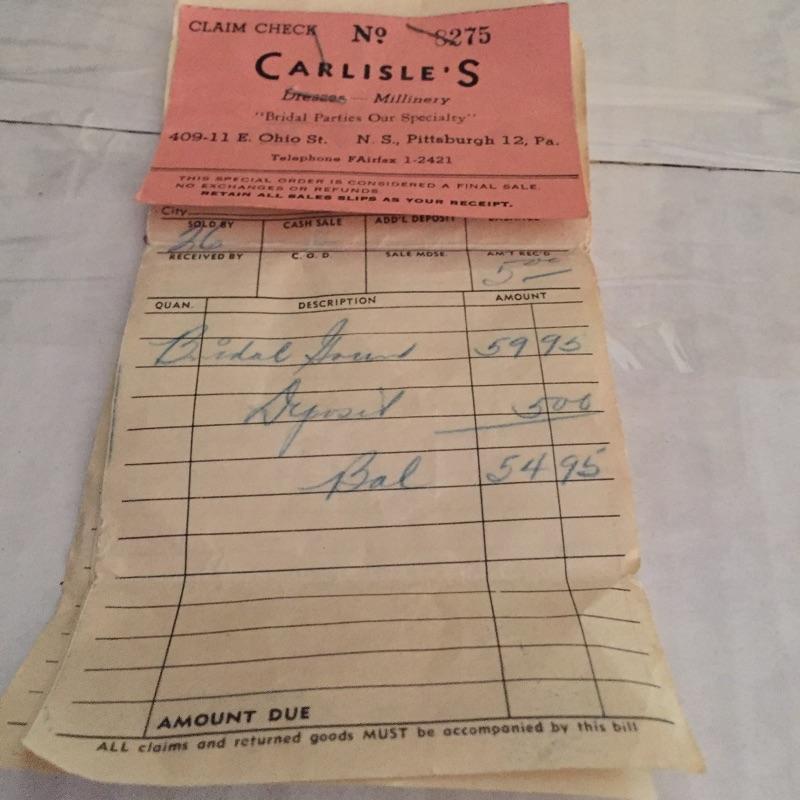 CLAIM CHECK No 8275
CARLISLE'S
Dresses — Millinery
"Bridal Parties Our Specialty"
409-11 E. Ohio St. N. S., Pittsburgh 12, Pa.
Telephone FAirfax 1-2421
THIS SPECIAL ORDER IS CONSIDERED A FINAL SALE.
NO EXCHANGES OR REFUNDS
RETAIN ALL SALES SLIPS AS YOUR RECEIPT.
City
SOLD BY CASH SALE ADD'L DEPOSIT
26
RECEIVED BY C. O. D. SALE MDSE. AM'T REC'D
5.00
QUAN. DESCRIPTION AMOUNT
Bridal Gown 59 95
Deposit 5 00
Bal 54 95
AMOUNT DUE
ALL claims and returned goods MUST be accompanied by this bill